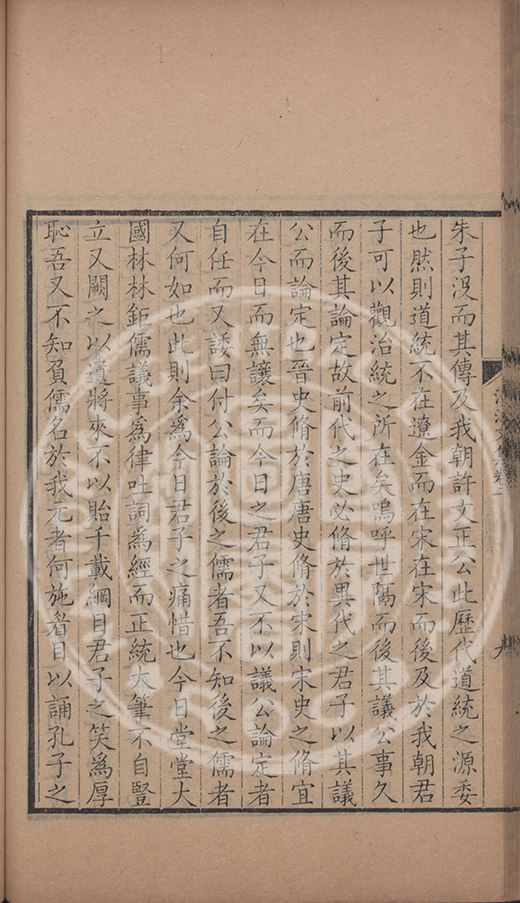 朱子沒而其傳及我朝許文正公此歷代道統之源委
也然則道統不在遼金而在宋在宋而後及於我朝君
子可以觀治統之所在矣嗚呼世隔而後其議公事久
而後其論定故前代之史必脩於異代之君子以其議
公而論定也晉史脩於唐唐史脩於宋則宋史之脩宜
在今日而無讓矣而今日之君子又不以議公論定者
自任而又諉曰付公論於後之儒者吾不知後之儒者
又何如也此則余為今日君子之痛惜也今日堂堂大
國林林鉅儒議事為律吐詞為經而正統大筆不自豎
立又闕之以遺將來不以貽千載綱目君子之笑為厚
恥吾又不知負儒名於我元者何施眉目以誦孔子之